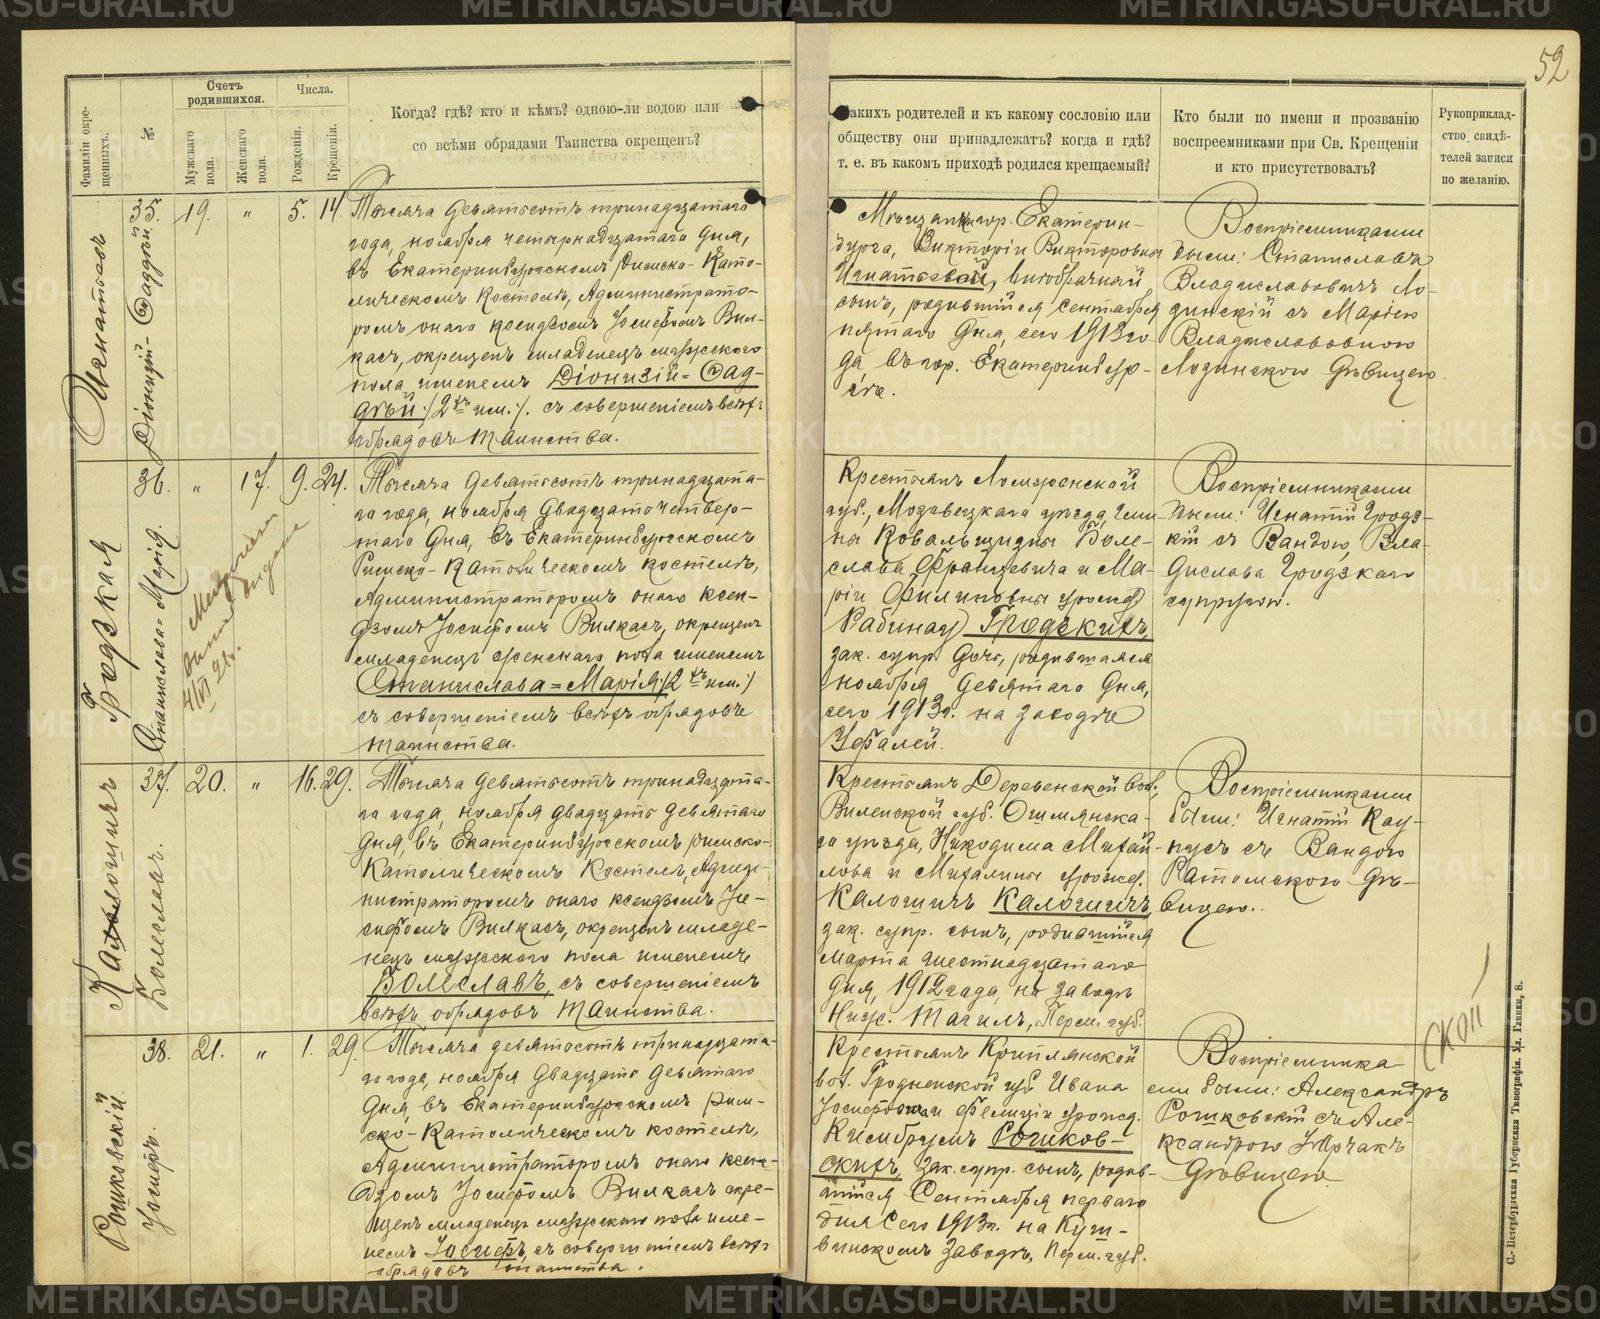 52
Фамиліи окре-
щенныхъ.
№
Счетъ
родившихся.
Мужскаго
пола.
Женскаго
пола.
Числа.
Рожденія.
Крещенія.
Когда? гдѣ? кто и кѣмъ? одною-ли водою или
со всѣми обрядами Таинства окрещенъ?
Какихъ родителей и къ какому сословію или
обществу они принадлежатъ? когда и гдѣ?
т. е. въ какомъ приходѣ родился крещаемый?
Кто были по имени и прозванію
воспреемниками при Св. Крещеніи
и кто присутствовалъ?
Рукоприклад-
ство свидѣ-
телей записи
по желанію.
Игнатьевъ
Діонизій-Фаддѣй.
35. 19. " 5. 14.
Тысяча девятьсотъ тринадцатаго
года, ноября четырнадцатаго дня,
въ Екатеринбургскомъ Римско-Като-
лическомъ Костелѣ, Администрато-
ромъ онаго ксендзомъ Іосифомъ Вил-
касъ, окрещенъ младенецъ мужескаго
пола, именемъ Діонизій=Фад-
дѣй /:2хъ им.:/. съ совершеніемъ всѣхъ
обрядовъ таинства.
Мѣщанки гор. Екатерин-
бурга, Викторіи Викторовны
Игнатьевой, внѣбрачный
сынъ, родившійся сентября
пятаго дня, сего 1913 го-
да въ гор. Екатеринбур-
гѣ.
Воспріемниками
были: Станиславъ
Владиславовичъ Ло-
дзинскій съ Маріею
Владиславовною
Лодзинскою дѣвицею.
Гродзкая
Станислава=Марія.
36. " 17. 9. 24.
Тысяча девятьсотъ тринадцата-
го года, ноября двадцать четвер-
таго дня, въ Екатеринбургскомъ
Римско-Католическомъ костелѣ,
Администраторомъ онаго ксен-
дзомъ Іосифомъ Вилкасъ, окрещенъ
младенецъ женскаго пола именемъ
Станислава=Марія /:2хъ им.:/
съ совершеніемъ всѣхъ обрядовъ
таинства.
Крестьянъ Ломженской
губ., Мазовецкаго уѣзда, гми-
ны Ковальщизны Боле-
слава Францевича и Ма-
ріи Филиповны урожд.
Гродзкихъ,
зак. супр. дочь, родившаяся
ноября девятаго дня,
сего 1913 г. на заводѣ
Уфалей.
Воспріемниками
были: Игнатій Гродз-
кій съ Вандою, Вла-
дислава Гродзкаго
супругою.
Калошичъ
Болеславъ.
37. 20. " 16. 29.
Тысяча девятьсотъ тринадцата-
го года, ноября двадцать девятаго
дня, въ Екатеринбургскомъ Римско-
Католическомъ Костелѣ, Админи-
нистраторомъ онаго ксендзомъ Іо-
сифомъ Вилкасъ, окрещенъ младе-
нецъ мужескаго пола именемъ
Болеславъ, съ совершеніемъ
всѣхъ обрядовъ таинства.
Крестьянъ Деревенской вол.,
Виленской губ. Ошмянска-
го уѣзда, Никодима Михай-
лова и Михалины урожд.
Калошичъ Калошичъ,
зак. супр. сынъ, родившійся
марта шестнадцатаго
дня, 1912 года, на заводѣ
Ниж. Тагилъ, Перм. губ.
Воспріемниками
были: Игнатій Кау-
пусъ съ Вандою
Ратомскою дѣ-
вицею.
Рошковскій
Іосифъ.
38. 21. " 1. 29.
Тысяча девятьсотъ тринадцата-
го года, ноября двадцать девятаго
дня, въ Екатеринбургскомъ Рим-
ско-Католическомъ костелѣ,
Администраторомъ онаго ксен-
дзомъ Іосифомъ Вилкасъ окре-
щенъ младенецъ мужескаго пола име-
немъ Іосифъ, съ совершеніемъ всѣхъ
обрядовъ таинства.
Крестьянъ
вол. Гродненской губ. Ивана
и Фелиціи урожд.
Рошков-
скихъ, зак. супр. сынъ, родив-
шійся Сентября перваго
дня сего 1913 г. на Куш-
винскомъ заводѣ, Перм. губ.
Воспріемника-
ми были: Александръ
Рошковскій съ Але-
ксандрою
дѣвицею.
С.-Петербургская Губернская Типографія. Ул. Глинки, 8.
METRIKI.GASO-URAL.RU